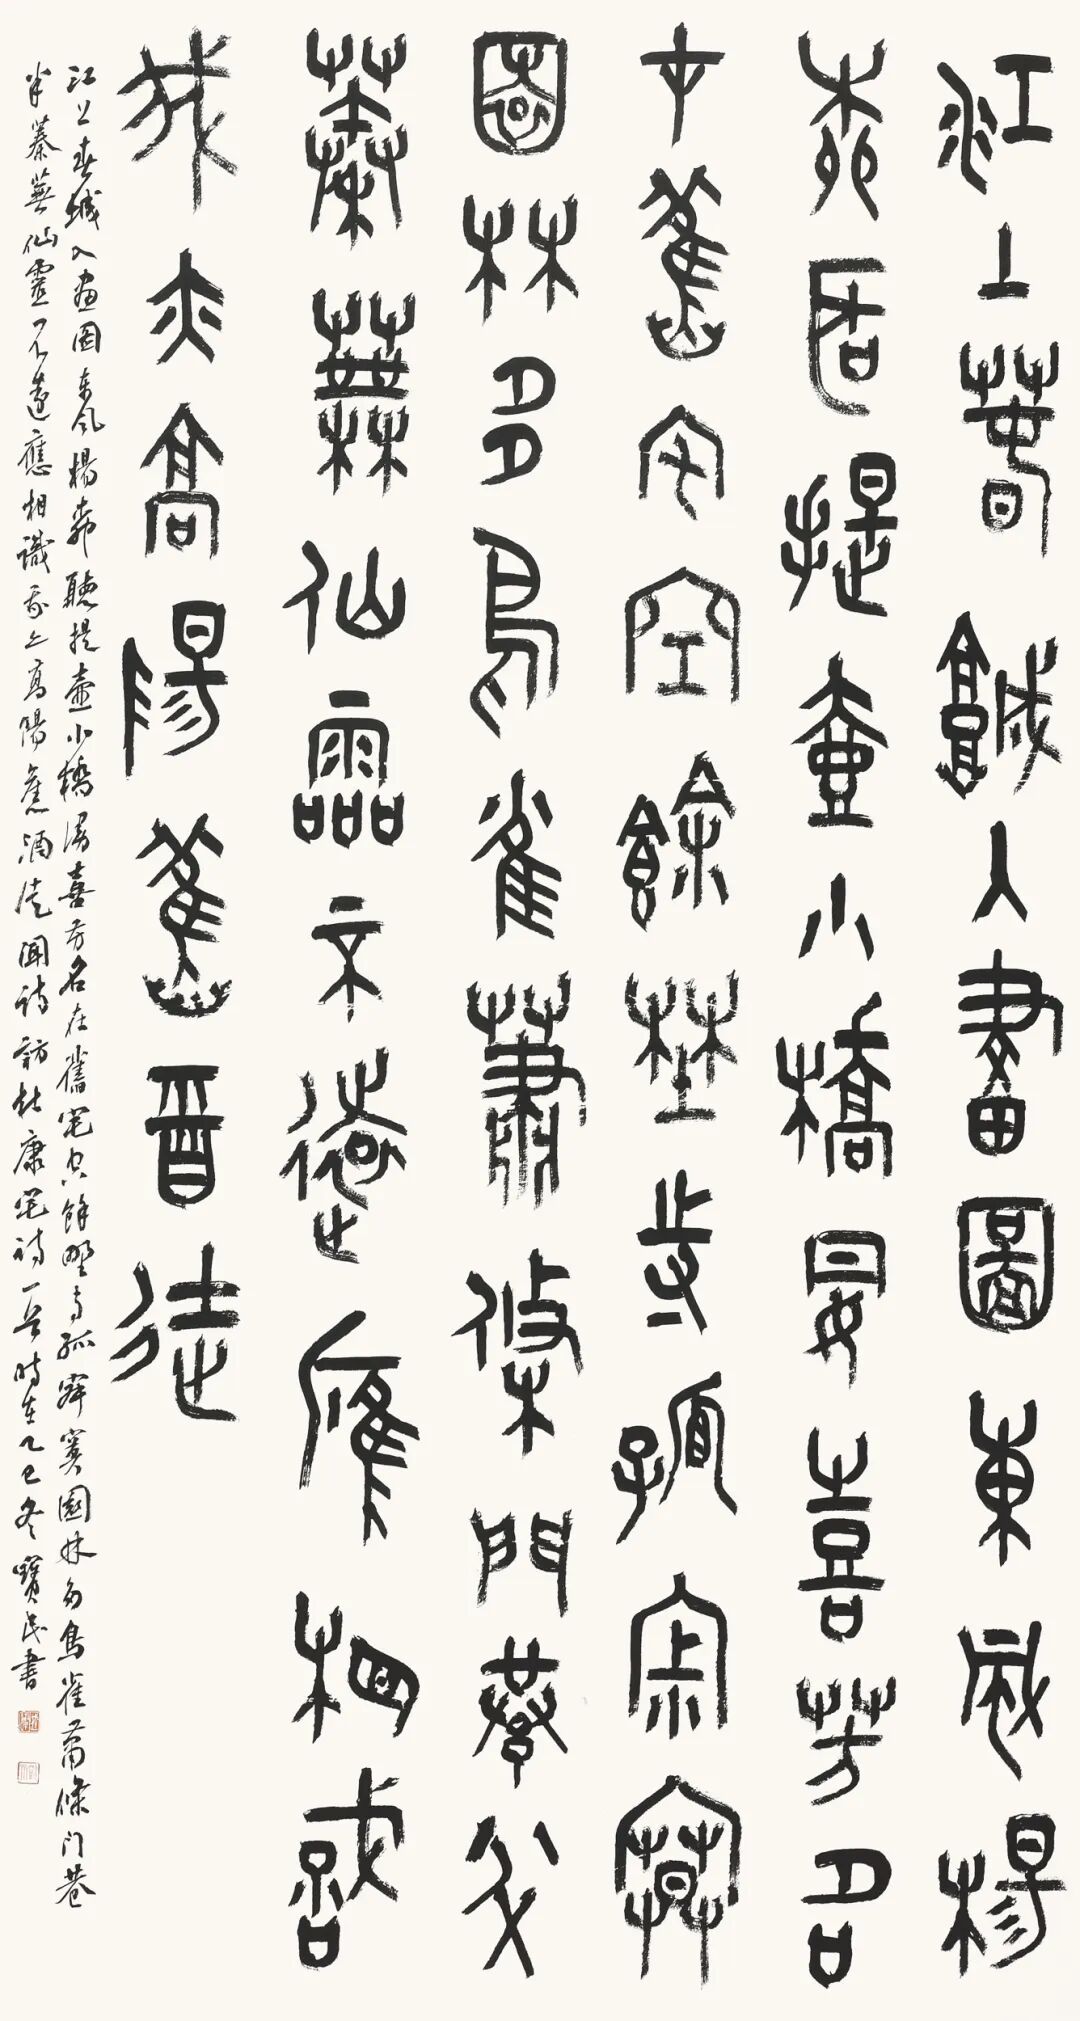 江上春城入畫圖東風楊
柳聽提壺小橋漫喜芳名
在舊宅空餘野寺孤寂寞
園林多鳥雀蕭條門巷半
蓁蕪仙靈不遠應相識
我亦高陽舊酒徒
江上春城入畫圖東風楊柳聽提壺小橋漫喜芳名在舊宅空餘野寺孤寂寞園林多鳥雀蕭條門巷
半蓁蕪仙靈不遠應相識我亦高陽舊酒徒聞詩訪杜康宅詩一首時在乙巳冬寶民書